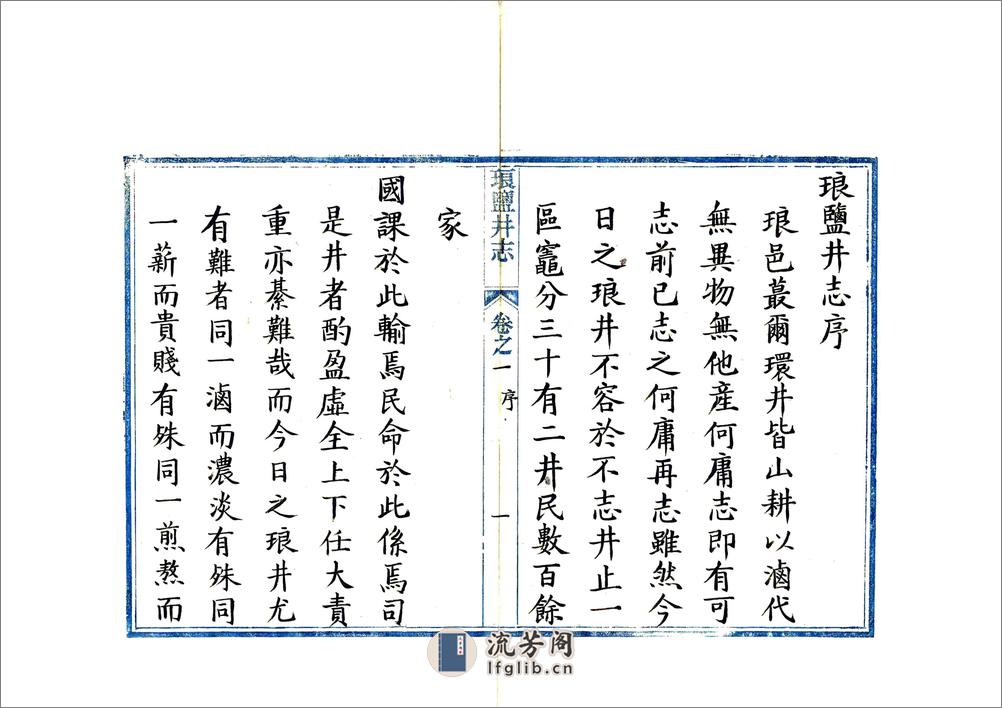 琅鹽井志序
琅邑蕞爾環井皆山耕以滷代
無異物無他產何庸志即有可
志前已志之何庸再志雖然今
日之琅井不容於不志井止一
區竈分三十有二井民數百餘
家
琅鹽井志 卷之一 序 一
國課於此輸焉民命於此係焉司
是井者酌盈虛全上下任大責
重亦綦難哉而今日之琅井尤
有難者同一滷而濃淡有殊同
一薪而貴賤有殊同一煎熬而
流芳阁
lfglib.cn